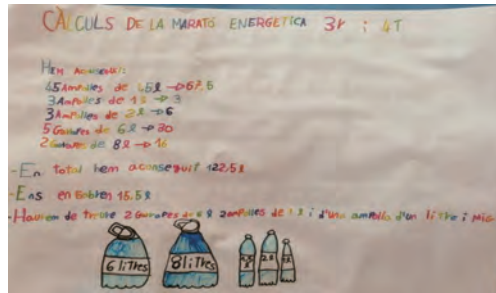 CÀLCULS DE LA MARATÓ ENERGETICA 3r i 4T
HEM ACONSEGUIT:
45 AMPOLLES de 1,5 l → 67,5
3 AMPOLLES de 1 l → 3
3 AMPOLLES de 2 l → 6
5 Garrafes de 6 l → 30
2 Garrafes de 8 l → 16
- En total hem aconseguit 122,5 l
- Ens en sobren 15.5 l
- Haurien de treure 2 Garrafes de 6 l 2 ampolles de 1 l i d'una ampolla d'un litre i mig
6 litres
8 litres
2 l